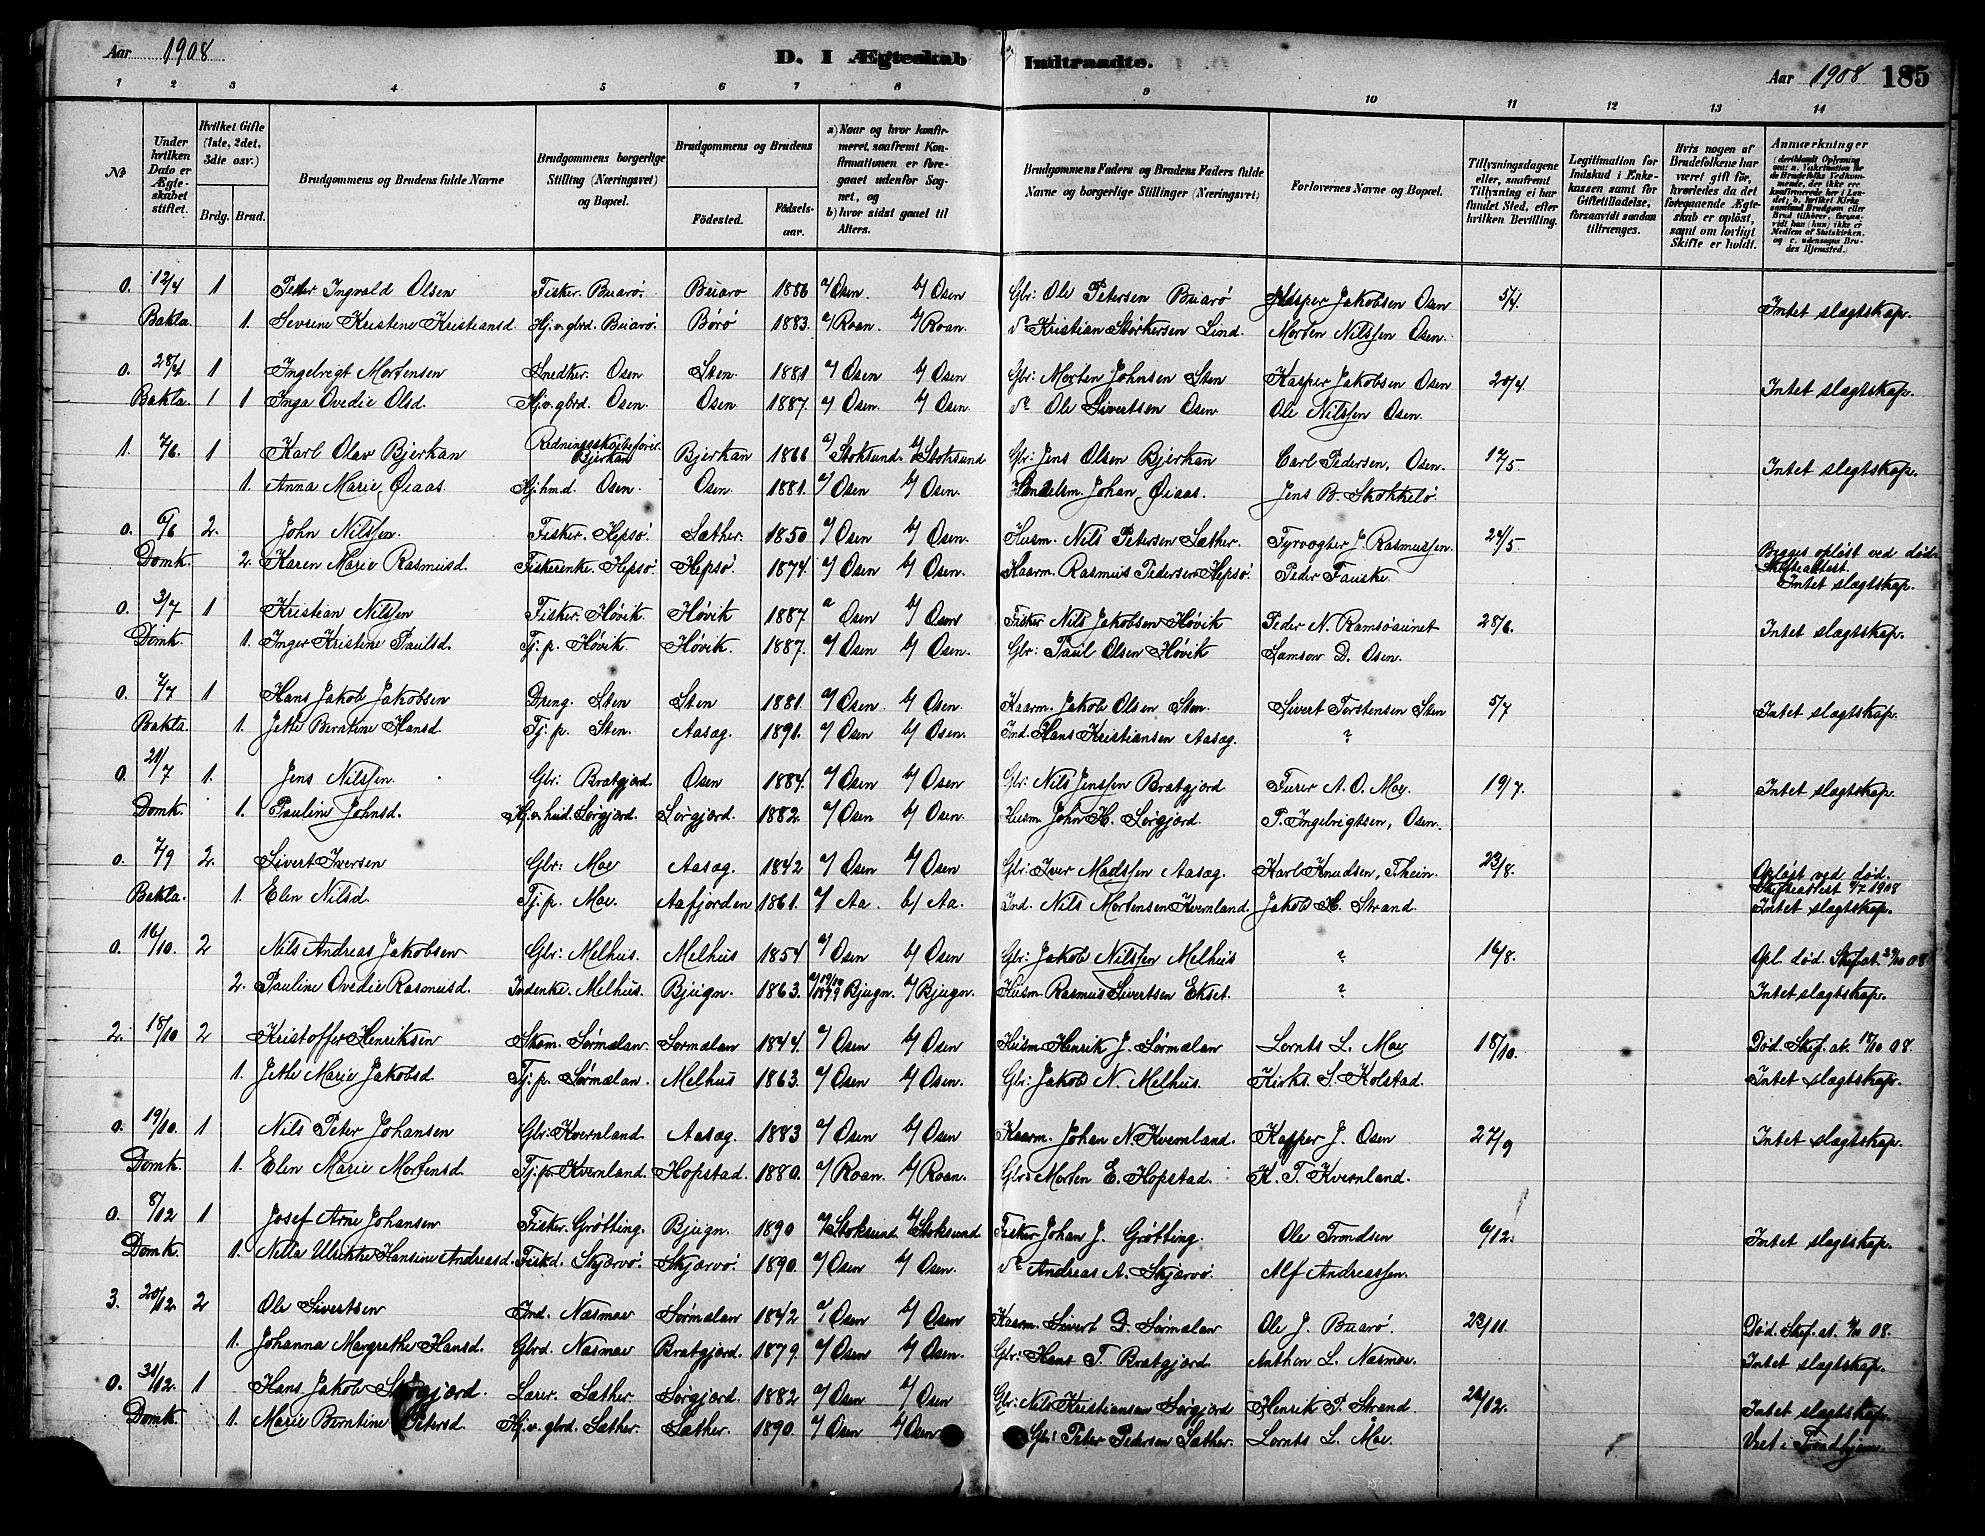 Aar 1908
D. I Ægteskab Indtraadte.
Aar 1908 185
1 2 3 4 5 6 7 8 9 10 11 12 13 14
No
Under hvilken Dato er Ægteskabet stiftet.
Hvilket Gifte (1ste, 2det, 3die osv.)
Brdg. Brud.
Brudgommens og Brudens fulde Navne
Brudgommens borgerlige Stilling (Næringsvei) og Bopæl.
Brudgommens og Brudens
Fødested. Fødselsaar.
a) Naar og hvor konfirmeret, saafremt Konfirmationen er foregaaet udenfor Sognet, og
b) hvor sidst gaaet til Alters.
Brudgommens Faders og Brudens Faders fulde Navne og borgerlige Stillinger (Næringsvei)
Forlovernes Navne og Bopæl.
Tillysningsdagene eller, saafremt Tillysning ei har fundet Sted, efter hvilken Bevilling.
Legitimation for Indskud i Enkekassen samt for Giftetilladelse, forsaavidt saadan tiltrænges.
Hvis nogen af Brudefolkene har været gift før, hvorledes da det foregaaende Ægteskab er opløst, samt om lovligt Skifte er holdt.
Anmærkninger
0. 12/4 1 Peter Ingvald Olsen Fisker. Buarø. Buarø 1886 a/ Osen. b/ Osen Gbr: Ole Petersen Buarø Kasper Jakobsen Osen 5/4. Intet slægtskap.
Bakla. 1. Severine Kristine Kristiansd. Hj.v.gbrd. Buarø. Børø 1883. a/ Roan. b/ Roan. do Kristian Størkersen Lind. Morten Nilssen Osen.
0. 28/4 1 Ingebrigt Mortensen Snedker. Osen Sten. 1881 a/ Osen b/ Osen. Gbr: Morten Johnsen Sten Kasper Jakobsen Osen 20/4. Intet slægtskap.
Bakla. 1 1 Inga Ovedie Olsd. Hj.v.gbrd. Osen. Osen 1887. a/ Osen. b/ Osen. do Ole Sivertsen Osen. Ole Nilssen Osen.
1. 7/6. 1 Karl Olav Bjerkan Redningsskøitefører. Bjerkan Bjerkan 1866 a/ Stoksund. b/ Stoksund Gbr: Jens Olsen Bjerkan Carl Pedersen, Osen. 17/5. Intet slegtskap.
1. Anna Marie Øiaas. Hj.hmd. Osen. Osen. 1881. a/ Osen b/ Osen. Handelsm. Johan Øiaas. Jens B. Skokkelø.
0. 6/6 2. John Nilssen. Fisker. Hepsø. Sæther. 1850 a/ Osen b/ Osen. Husm. Nils Petersen Sæther. Fyrvogter J. Rasmussen. 24/5. Begges opløst ved død. Skifteattest.
Domk. 2. Karen Marie Rasmusd. Fiskerenke. Hepsø. Hepsø. 1874. a/ Osen b/ Osen. Kaarm. Rasmus Pedersen Hepsø. Peder Fauske. Intet slægtskap.
0. 3/7 1 Kristian Nilssen Fisker. Høvik. Høvik 1887 a Osen b/ Osen Fisker Nils Jakobsen Høvik Peder N. Ramsøaunet 28/6. Intet slægtskap.
Domk. 1. Inger Kristine Paulsd. Tj. p. Høvik. Høvik. 1887. a/ Osen b/ Osen. Gbr: Paul Olsen Høvik Samson D. Osen.
0. 7/7 1 Hans Jakob Jakobsen Dreng. Sten Sten 1881. a/ Osen. b/ Osen. Kaarm. Jakob Olsen Sten. Sivert Torstensen Sten 5/7 Intet slægtskap.
Bakla. 1. Jette Berntine Hansd. Tj. p. Sten. Aasæg. 1891. a/ Osen b/ Osen. Ind. Hans Kristiansen Aasæg. ?
0. 21/7 1. Jens Nilssen. Gbr: Bratgjord. Osen 1884. a/ Osen. b/ Osen Gbr: Nils Jenssen Bratgjord Furer A. O. Moe. 19/7. Intet slægtskap.
Domk. 1. Pauline Johnsd. Hj.v.hud. Sørgjord. Sørgjord. 1882. a/ Osen b/ Osen. Husm. John H. Sørgjord. P. Ingebrigtsen, Osen.
0. 7/9 2. Sivert Iversen Gbr: Moe Aasæg. 1842 a/ Osen b/ Osen Gbr: Iver Madssen Aasæg. Karl Knudsen, 23/8. Opløst ved død. Skifteattest 9/7 1908
Bakla. 1. Elen Nilsd. Tj. p. Moe. Aafjorden 1861. a/ Aa. b/ Aa. Ind. Nils Mortensen Kvernland. Jakob H. Strand. Intet slægtskap.
0. 16/10. 2 Nils Andreas Jakobsen Gbr: Melhus. Melhus 1854 a/ Osen b/ Osen Gbr: Jakob Nilssen Melhus ? 16/8. Opl. død. Skef.at. 08.
2. Pauline Ovedie Rasmusd. Indenke. Melhus. Bjugn. 1863. 1879 Bjugn. b/ Bjugn. Husm. Rasmus Sivertsen Ekset. ? Intet slægtskap.
2. 18/10 2 Kristoffer Henriksen Skom. Sørmælan. Sørmælan 1844. a/ Osen b/ Osen Husm. Henrik J. Sørmælan Lornts L. Moe 18/10. Død. Skef. at. 17/10 08.
1. Jette Marie Jakobsd. Tj. p. Sørmælan. Melhus 1863. a/ Osen b/ Osen. Gbr: Jakob N. Melhus. Kirks. S. Kolstad. Intet slægtskap.
0. 19/10. 1 Nils Peter Johansen Gbr: Kvernland. Aasæg. 1883 a/ Osen b/ Osen Kaarm. Johan N. Kvernland. Kasper J. Osen 27/9 Intet slægtskap.
Domk. 1. Elen Marie Mortensd. Tj. p. Kvernland. Hopstad. 1880. a/ Roan. b/ Roan. Gbr: Morten E. Hopstad. K. T. Kvernland.
0. 8/12 1 Josef Arne Johansen Fisker. Grøtting. Bjugn. 1890 a/ Stoksund b/ Stoksund. Fisker Johan J. Grøtting. Ole Trondsen 6/12. Intet slægtskap.
Domk. 1. Nella Ulrikke Hansine Andreasd. Fiskd. Skjærvø. Skjærvø. 1890. a/ Osen b/ Osen. do Andreas A. Skjærvø. Alf Andreassen.
3. 20/12. 2 Ole Sivertsen Ind. Næsmoe Sørmælan 1842 a/ Osen b/ Osen Kaarm. Sivert D. Sørmælan Ole J. Buarø. 23/11. Død. Skef. at. 08.
1. Johanna Margrethe Hansd. Gbrd. Næsmoe Bratgjord. 1879. a/ Osen b/ Osen. Gbr: Hans T. Bratgjord. Anthon L. Næsmoe. Intet slægtskap.
0. 31/12. 1 Hans Jakob Sørgjord. Lærer. Sæther. Sørgjord. 1882 a/ Osen b/ Osen Gbr: Nils Kristiansen Sørgjord Henrik P. Strand. 26/12. Intet slægtskap.
Domk. 1. Marie Berntine Petersd. Hj.v.gbrd. Sæther. Sæther. 1890. a/ Osen b/ Osen Gbr: Peter Pedersen Sæther. Lornts L. Moe. Viet i Trondhjem.